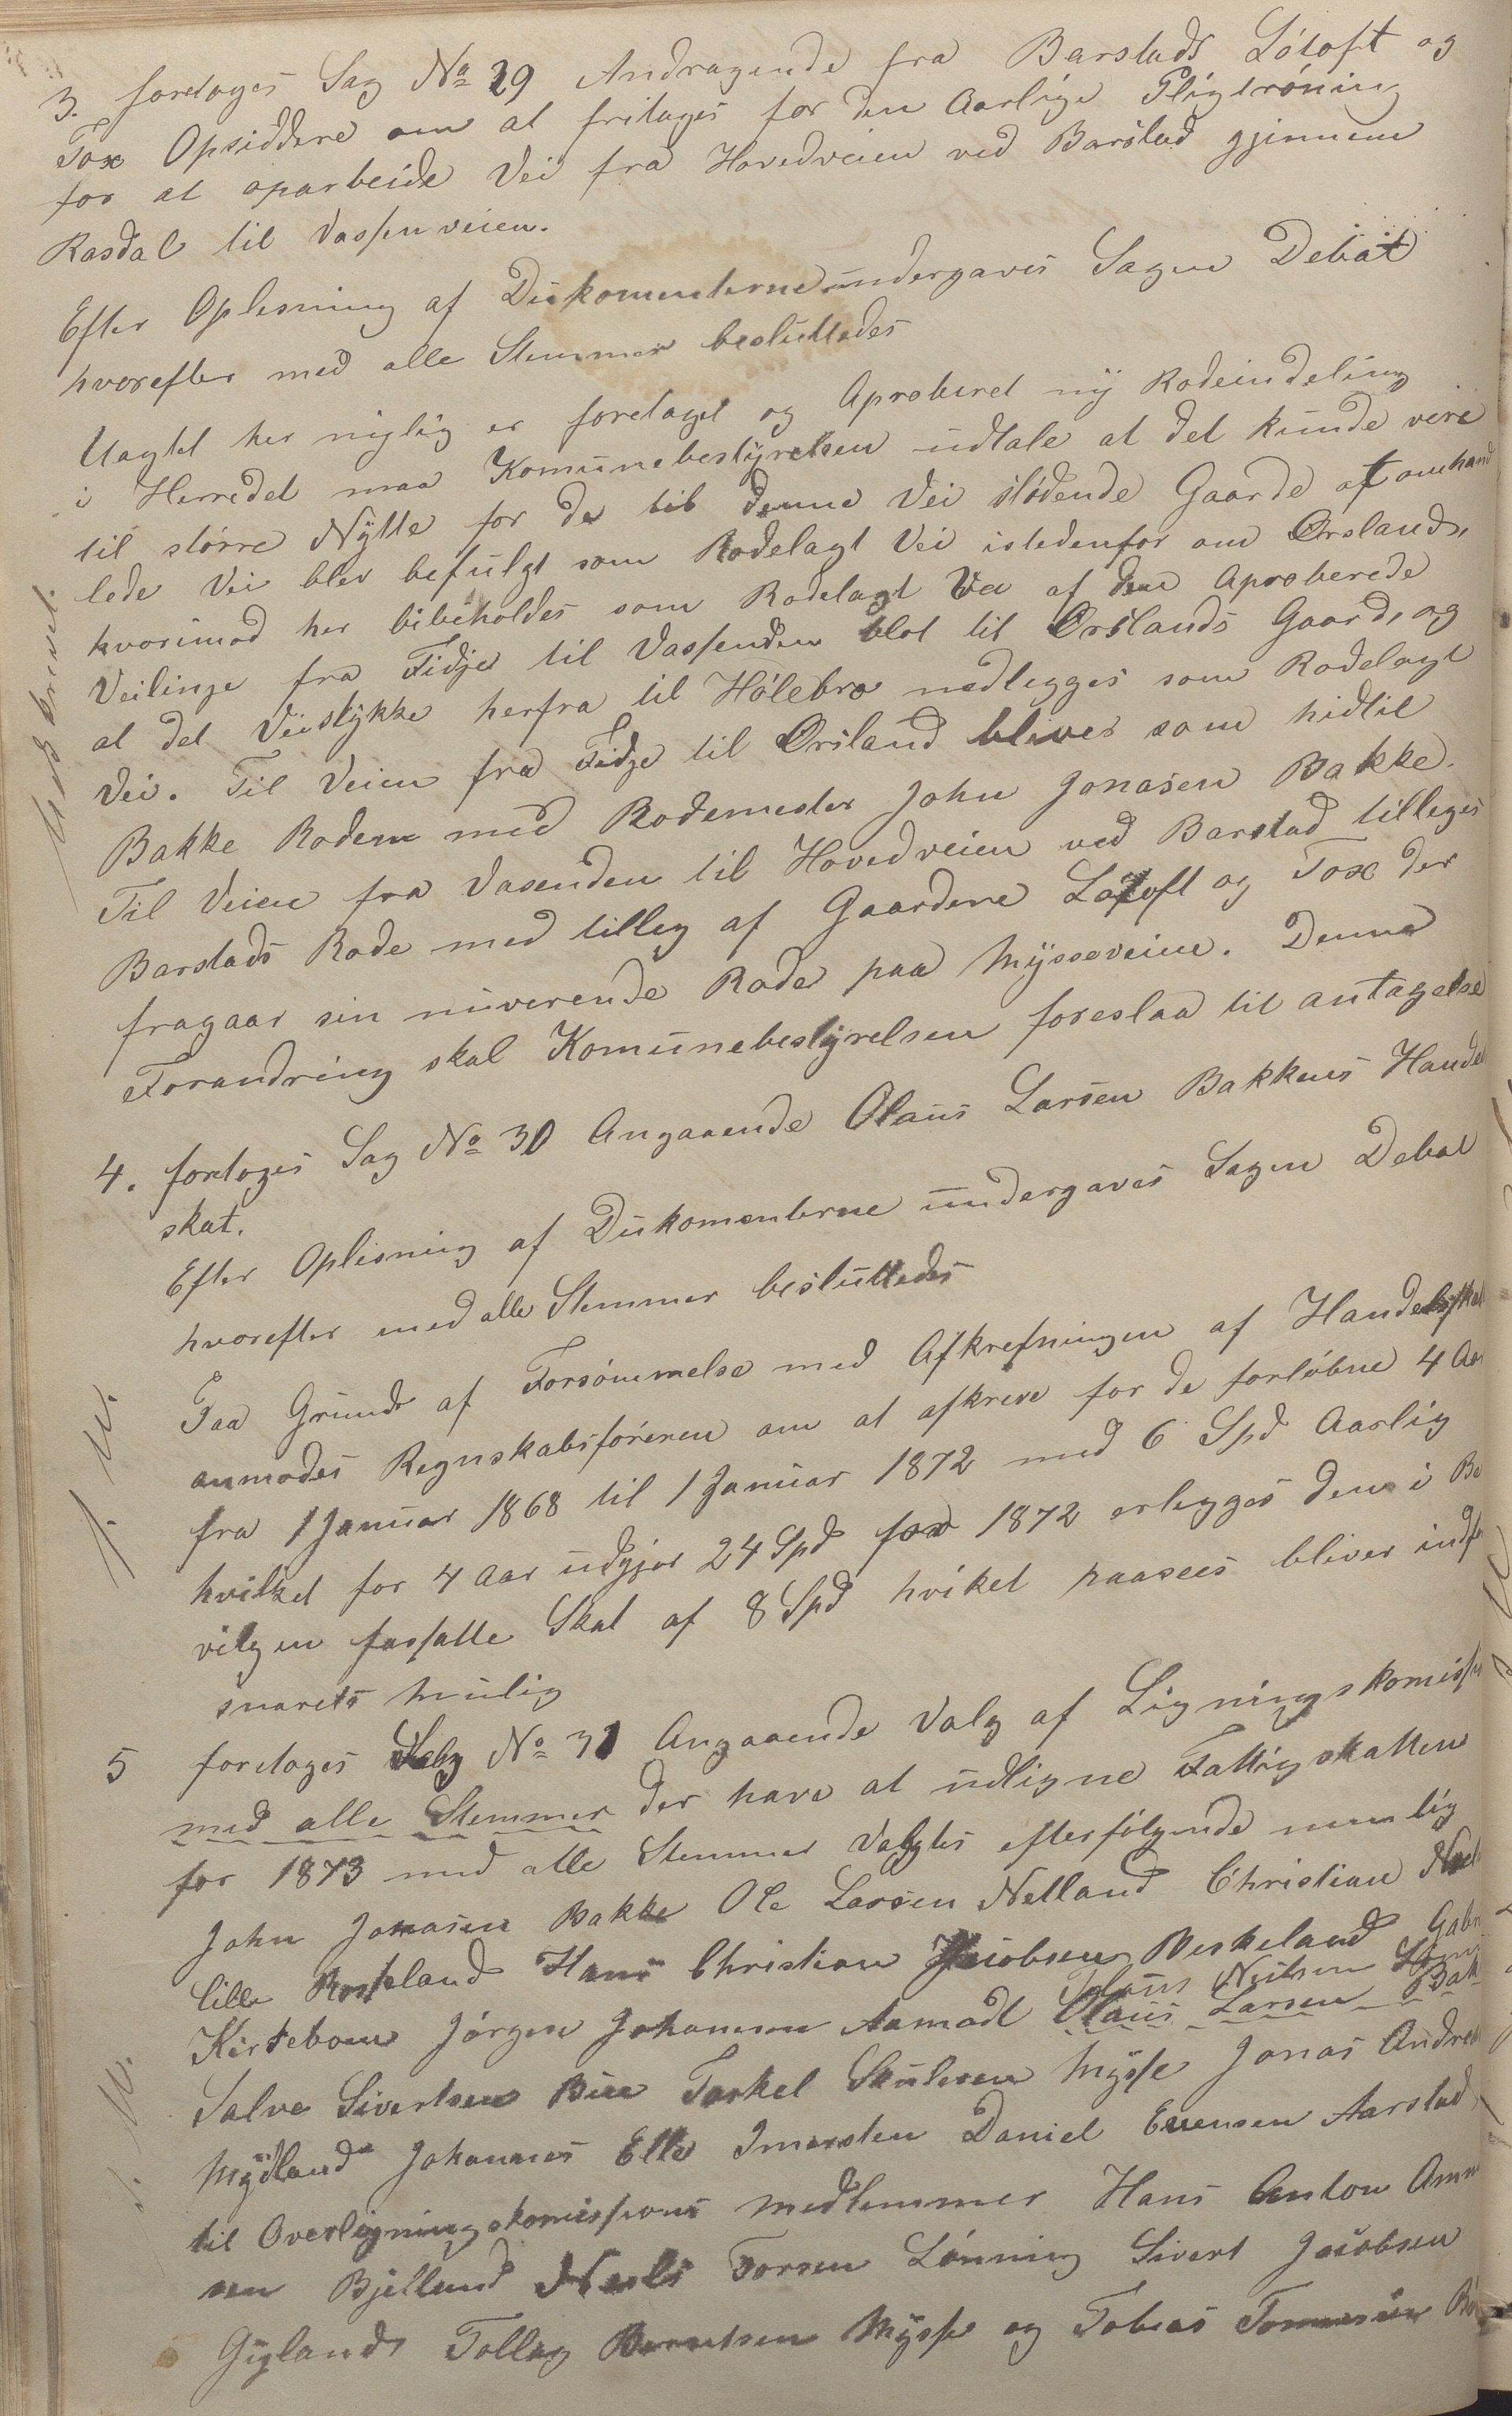 3. foretoges Sag No 29 Andragende fra Barstads Lótoft og
Tox Opsiddere om at fritages for den Aarlige Pligtróning
for at oparbeide Vei fra Hovedveien ved Barstad gjinnem
Rasdal til Vassenveien.
Efter Oplesning af Dukomenterne undergaves Sagen Debat
hvorefter med alle Stemmer besluttedes
Uagtet her nylig er foretaget og Aproberet ny Rodeindeling
i Herredet maa Komunebestyrelsen udtale at det kunde vere
til större Nytte for de til denne Vei stödende Gaarde at omhand
lede Vei blev befulgt som Rodelagt Vei istedenfor om Örslands,
kvorimod her bibeholdes som Rodelagt Vei af den Aproberede
Veilinje fra Fidje til Vassenden blot til Örslands Gaard, og
at det Veistykke herfra til Hólebro nedlegges som Rodelagt
Vei. Til Veien fra Fidje til Örsland bliver som hidtil
Bakke Roden med Rodemester John Jonasen Bakke.
Til Veien fra Vasenden til Hovedveien ved Barstad tilleges
Barstads Rode med tilleg af Gaardene Lótoft og Tox der
fragaar sin nuverende Rode paa Mysseveien. Denne
Forandring skal Komunebestyrelsen foreslaa til antagelse
4. foretoges Sag No 30 Angaaende Olaus Larsen Bakkens Handel
skat.
Efter Oplesning af Dukomenterne undergaves Sagen Debat
hvorefter med alle Stemmer besluttedes
Paa Grund af Forsömmelse med Afkrefningen af Handelsskat
anmodes Regnskabsföreren om at afkreve for de forlöbne 4 Aar
fra 1 Januar 1868 til 1 Januar 1872 med 6 Spd Aarlig
hvilket for 4 Aar udgjor 24 Spd for 1872 erlegges den i Be
vilgen fassatte Skat af 8 Spd hviket paasees bliver indf
snarets mulig
5 foretoges Sag No 31 Angaaende Valg af Ligningskomiss
med alle Stemmer der have at udligne Fattigskatten
for 1873 med alle Stemmer Valgtes efterfölgende nemlig
John Jonasen Bakke Ole Larsen Netland Christian
lille Rosseland Hans Christian Jacobsen Beskeland Gabr
Kirkebom Jörgen Johannesen Aamodt Olaus Larsen Bak
Salve Sivertsen Bue Torkel Skulesen Mysse Jonas Andre
Mydland Johannes Elle Daniel Evensen Aarstad
til Overligningskomissions medlemmer Hans Anton Amu
sen Bjelland Neels Torsen Lönning Sivert Jacobsen
Gylands Tollag Berentsen Mysse og Tobias